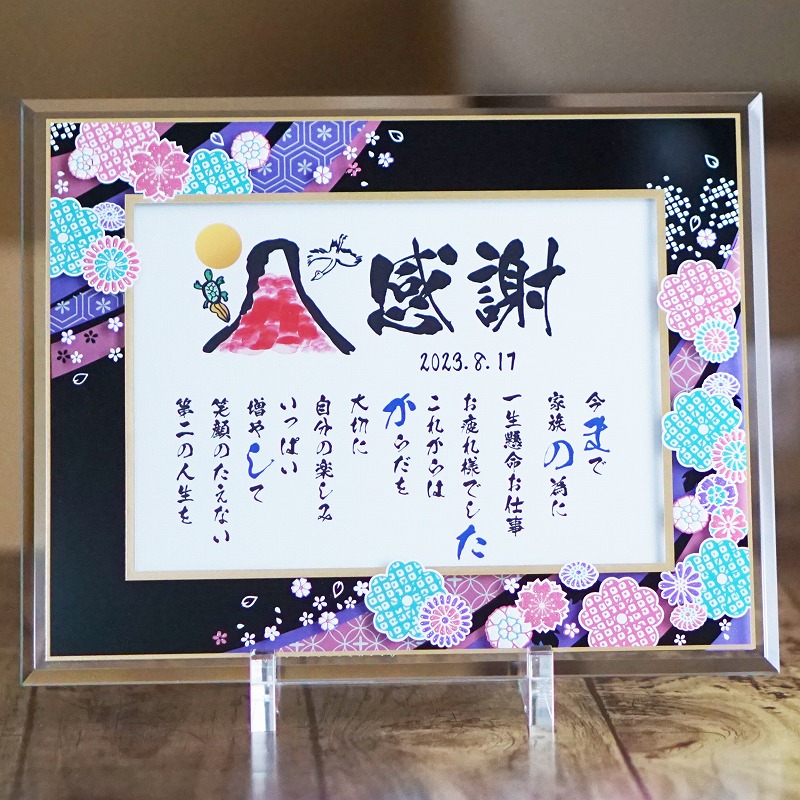 感謝
2023.8.17
今まで
家族の為に
一生懸命お仕事
お疲れ様でした
これからは
からだを
大切に
自分の楽しみ
いっぱい
増やして
笑顔のたえない
第二の人生を